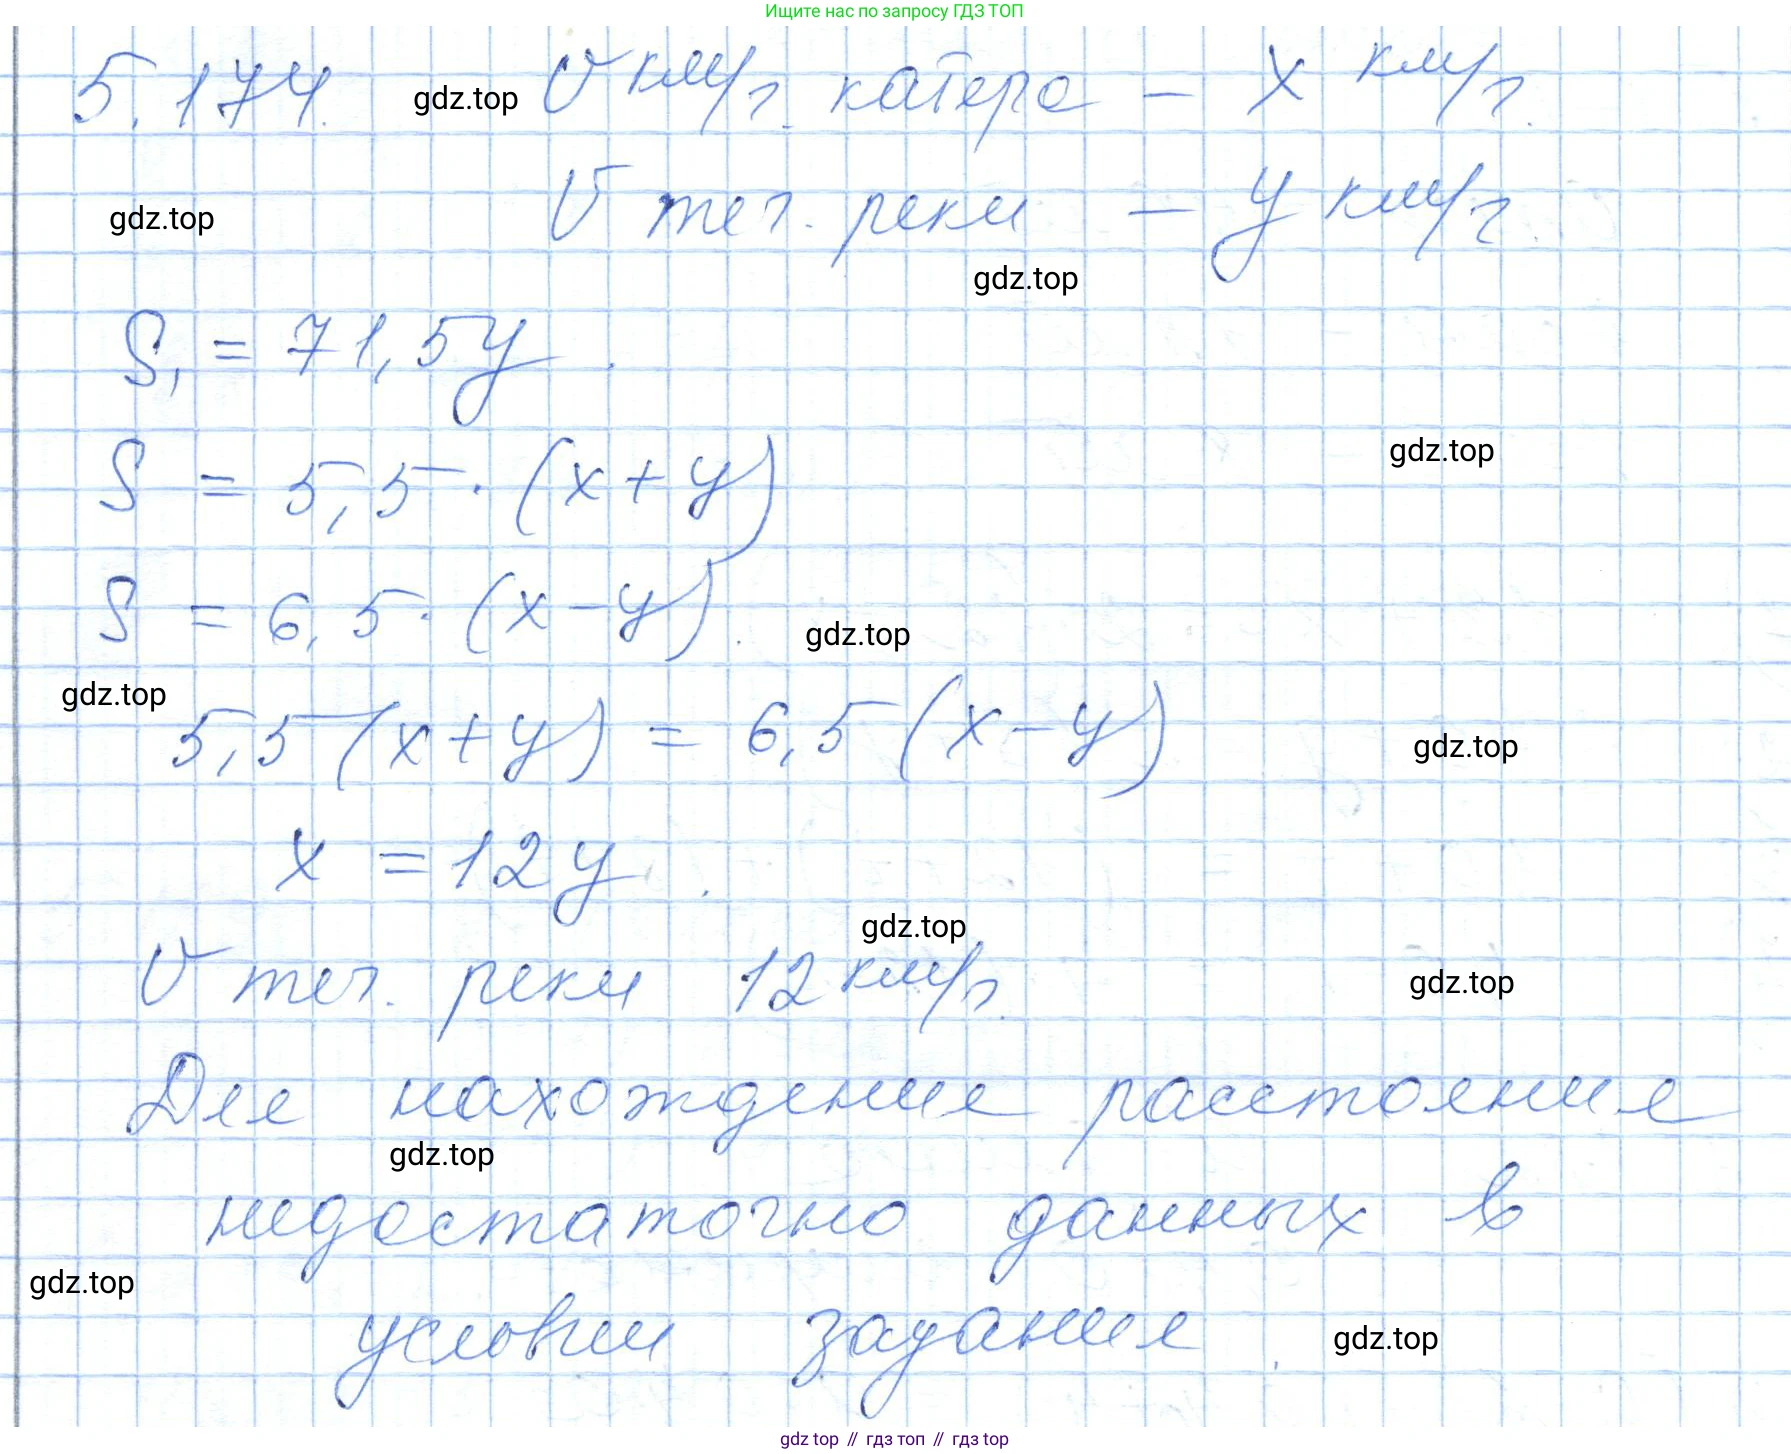 Ищите нас по запросу ГДЗ ТОП
5.174. gdz.top V км/ч. катера – x км/ч.
gdz.top V теч. реки – y км/ч.
gdz.top
S₁ = 71,5y.
gdz.top
S = 5,5 · (x + y)
S = 6,5 · (x – y).
gdz.top
gdz.top
5,5 (x + y) = 6,5 (x – y)
gdz.top
x = 12y.
gdz.top
V теч. реки 12 км/ч.
gdz.top
Для нахождения расстояния
gdz.top
недостаточно данных в
gdz.top
условии задания.
gdz.top
gdz top // гдз топ // гдз top